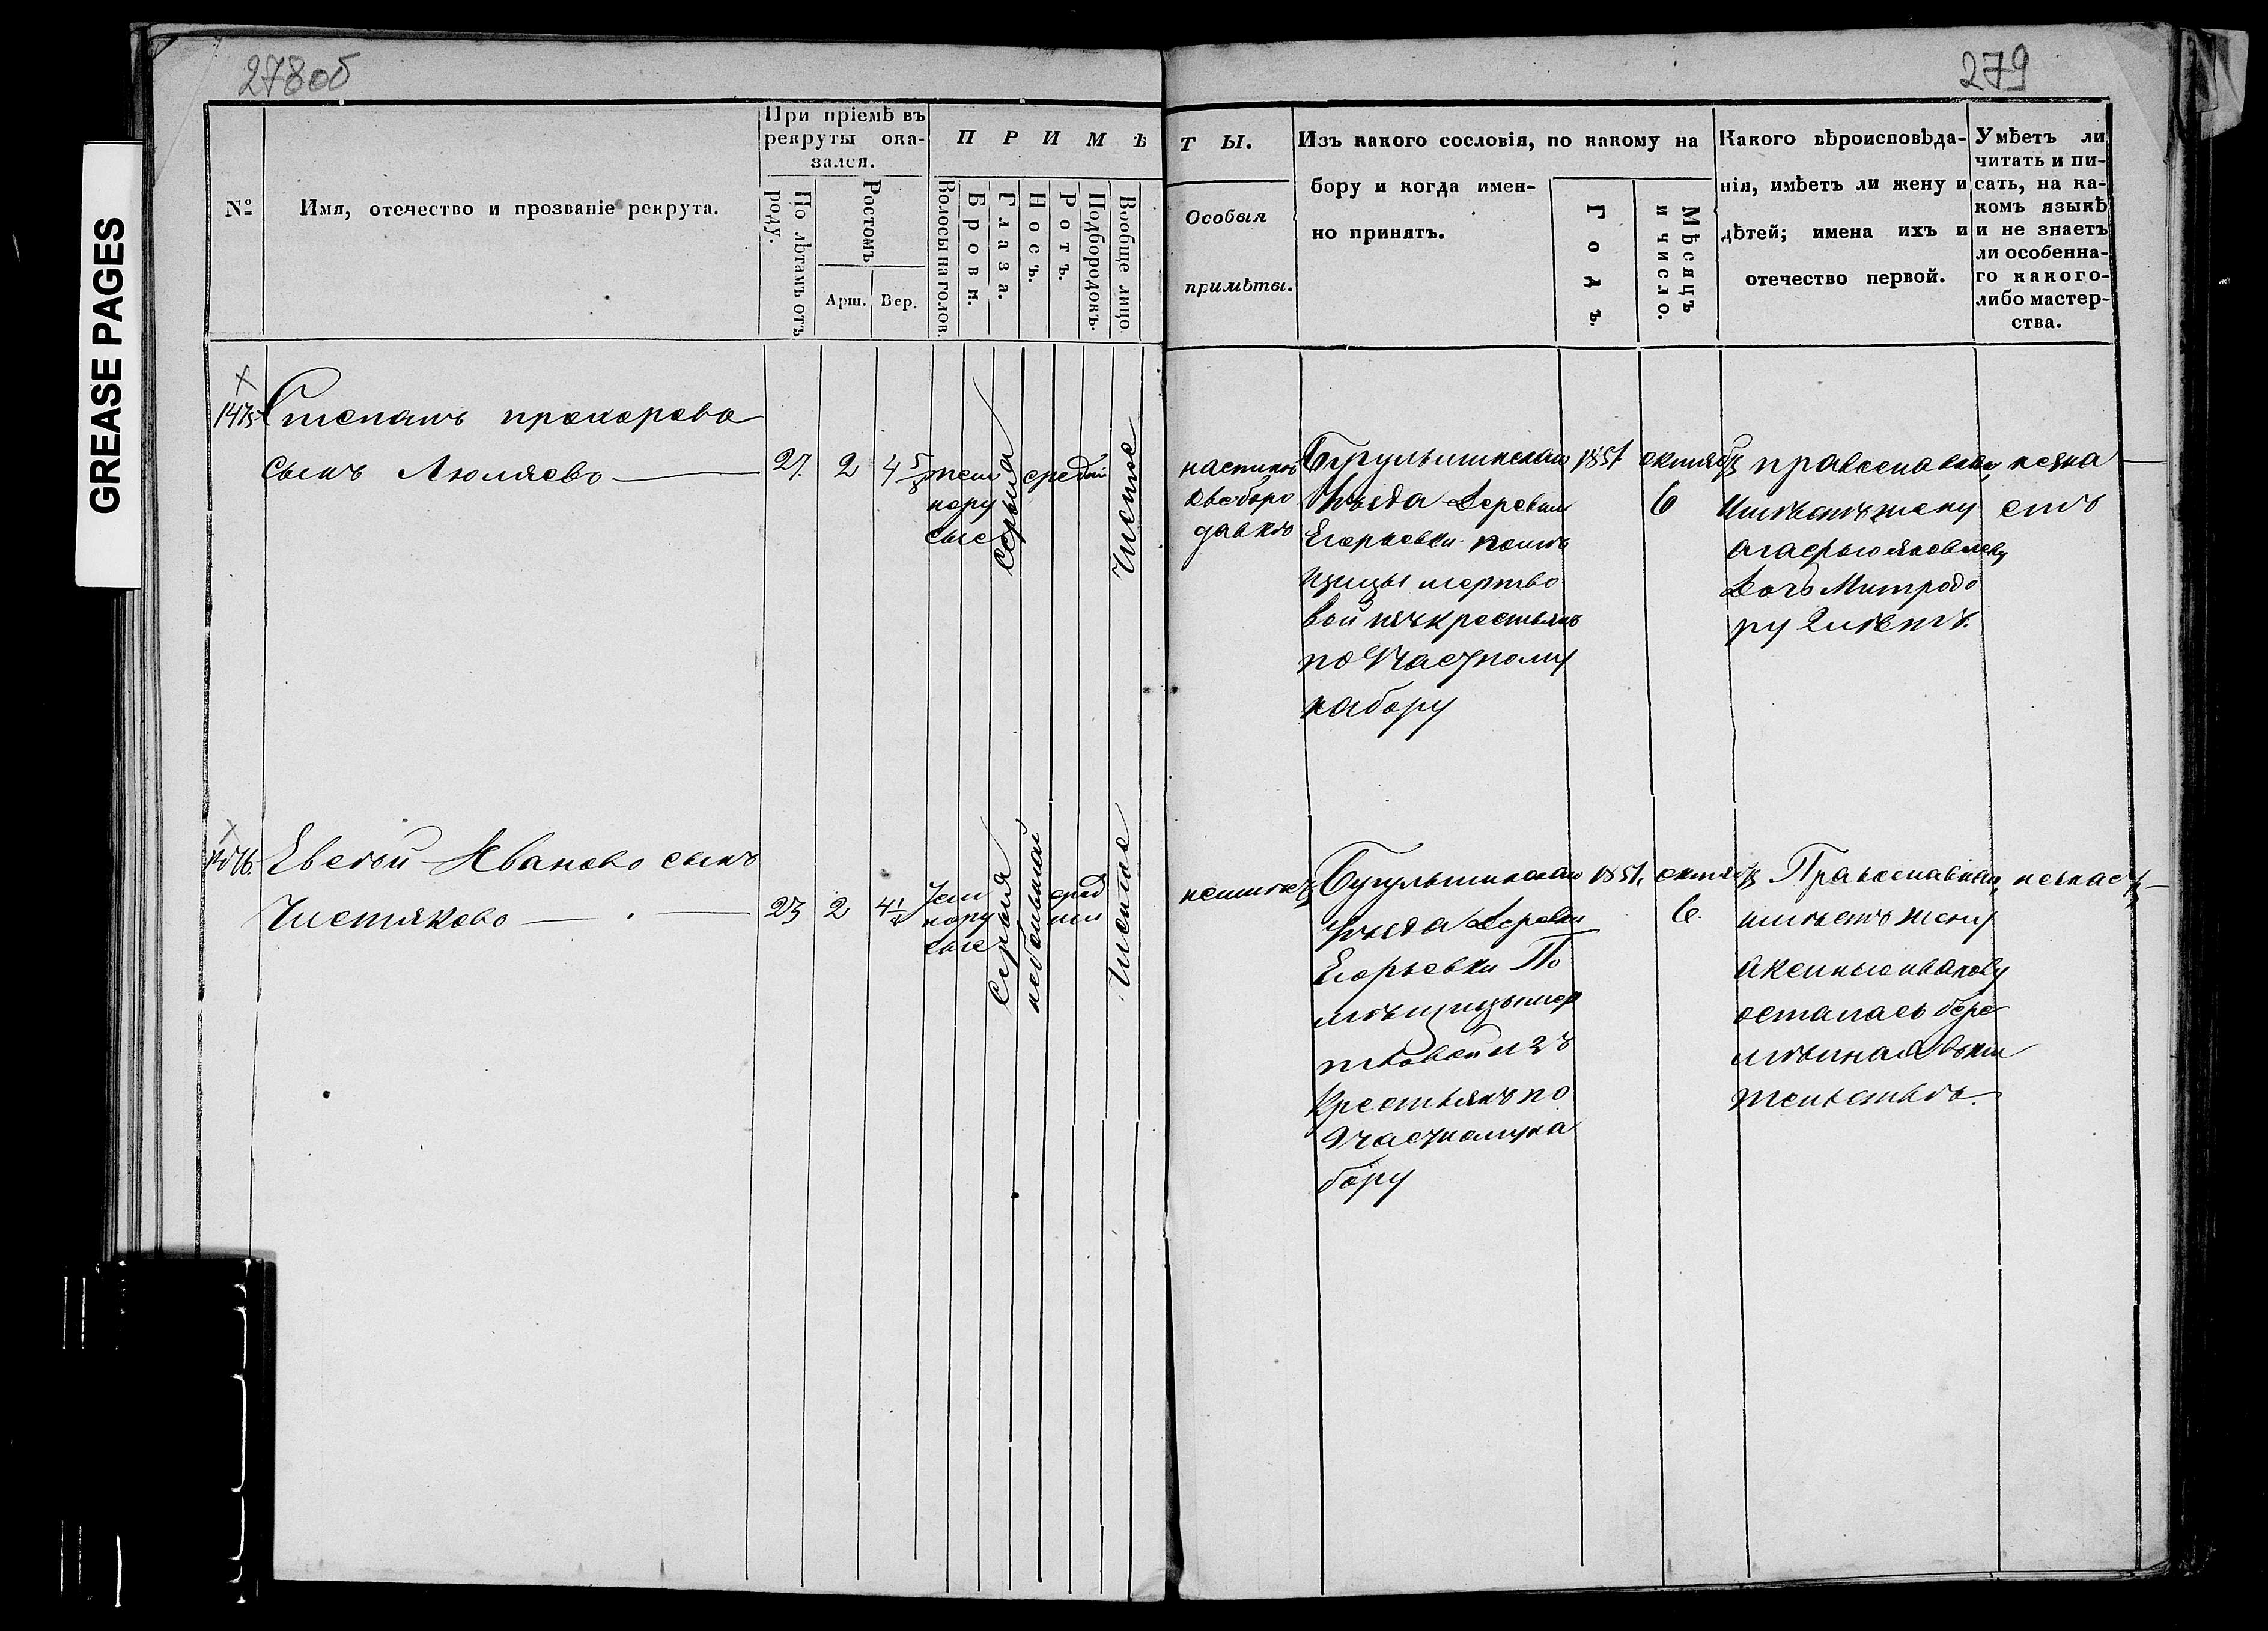 278об
279
GREASE PAGES
№
Имя, отечество и прозваніе рекрута.
При пріемѣ въ
рекруты ока-
зался.
По лѣтамъ отъ
роду.
Ростомъ
Арш.
Вер.
ПРИМѢ
Волосы на голов.
Брови.
Глаза.
Носъ.
Ротъ.
Подбородокъ.
Вообще лицо.
ТЫ.
Особыя
примѣты.
Изъ какого сословія, по какому на
бору и когда имен-
но принятъ.
Годъ.
Мѣсяцъ
и число.
Какого вѣроисповѣда-
нія, имѣетъ ли жену и
дѣтей; имена ихъ и
отечество первой.
Умѣетъ ли
читать и пи-
сать, на ка-
комъ языкѣ
и не знаетъ
ли особенна-
го какого-
либо мастер-
ства.
1475
Степанъ прохорово
сынъ Люляево
27
2
4 5/8
темно
русые
серыя
средній
Чистое
на спинѣ
две боро
давки
Бугульминскаго
Уѣзда деревни
Егорьевки помѣ
щицы мертво
вой изъ крестьянъ
по Частному
набору
1851
октября
6
православнаго
Имѣетъ жену
агафью яковлеву
дочь Митродо
ру 2 лѣтъ.
незна
етъ
1476
Евсѣй Иваново сынъ
Чистяково
23
2
4 1/2
Тем
нору
сые
Серыя
небольшой
сред
ніи
Чистое
неимѣетъ
Бугульминскаго
Уѣзда Деревни
Егорьевки По
мѣщицы мер
твовой изъ
Крестьянъ по
Частному на
бору
1851.
октября
6.
Православнаго
имѣетъ жену
аксинью иванову
осталась бере
мѣнная въ жи
тельствѣ.
незнаетъ